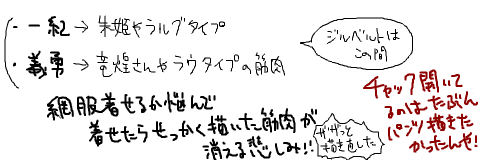 ・一紅 → 朱姫やラルグタイプ
・義勇 → 竜煌さんやラウタイプの筋肉
ジルベルトは
この間
網服着せるか悩んで
着せたらせっかく描いた筋肉が
消える悲しみ!!
ザザっと
描き直した
チャック開いて
るのはたぶん
パンツ描きた
かったんや!